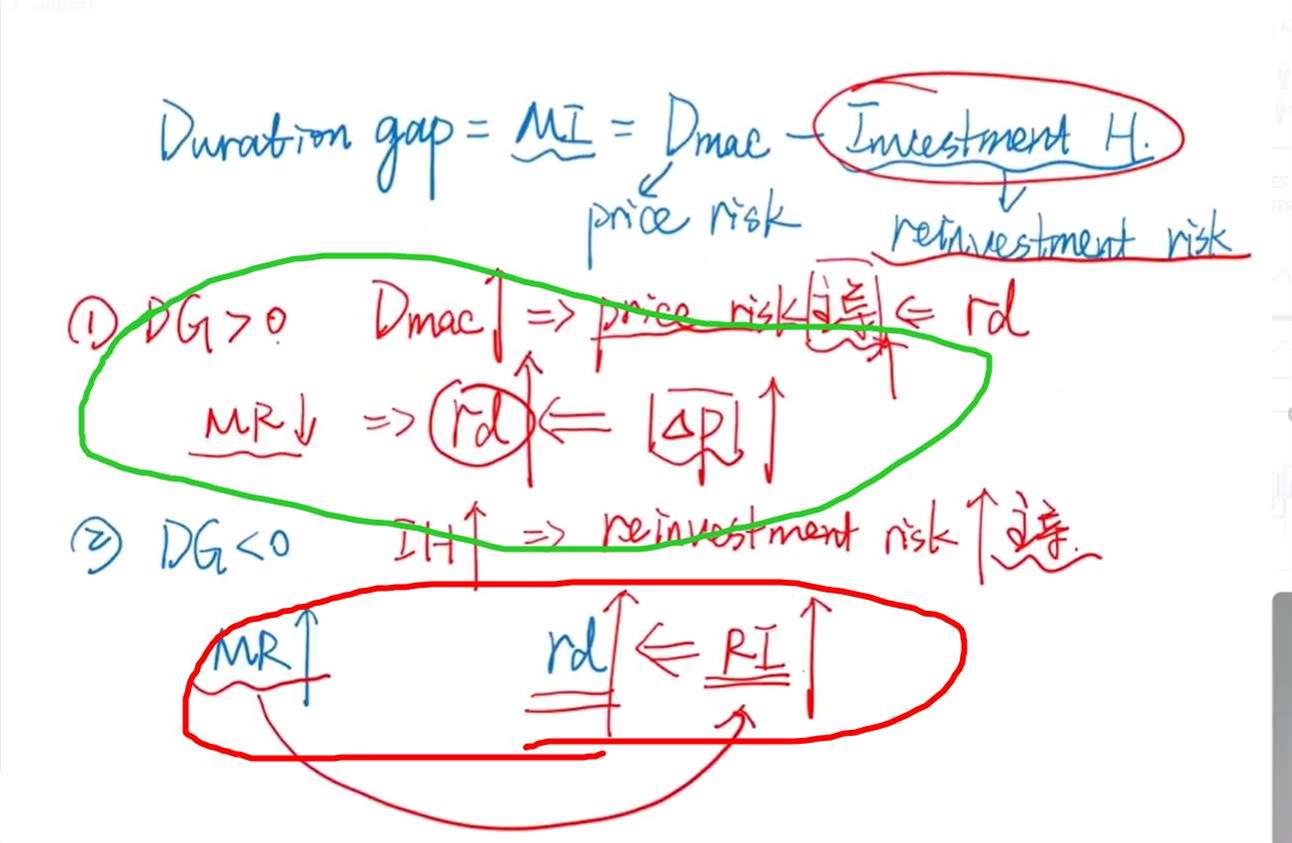 Duration gap = MI = Dmac - Investment H.
price risk
reinvestment risk
① DG > 0 Dmac↑ => price risk 主导 <= rd
MR↓ => rd↑ <= |ΔP|↑
② DG < 0 IH↑ => reinvestment risk↑ 主导.
MR↑ rd↑ <= RI↑